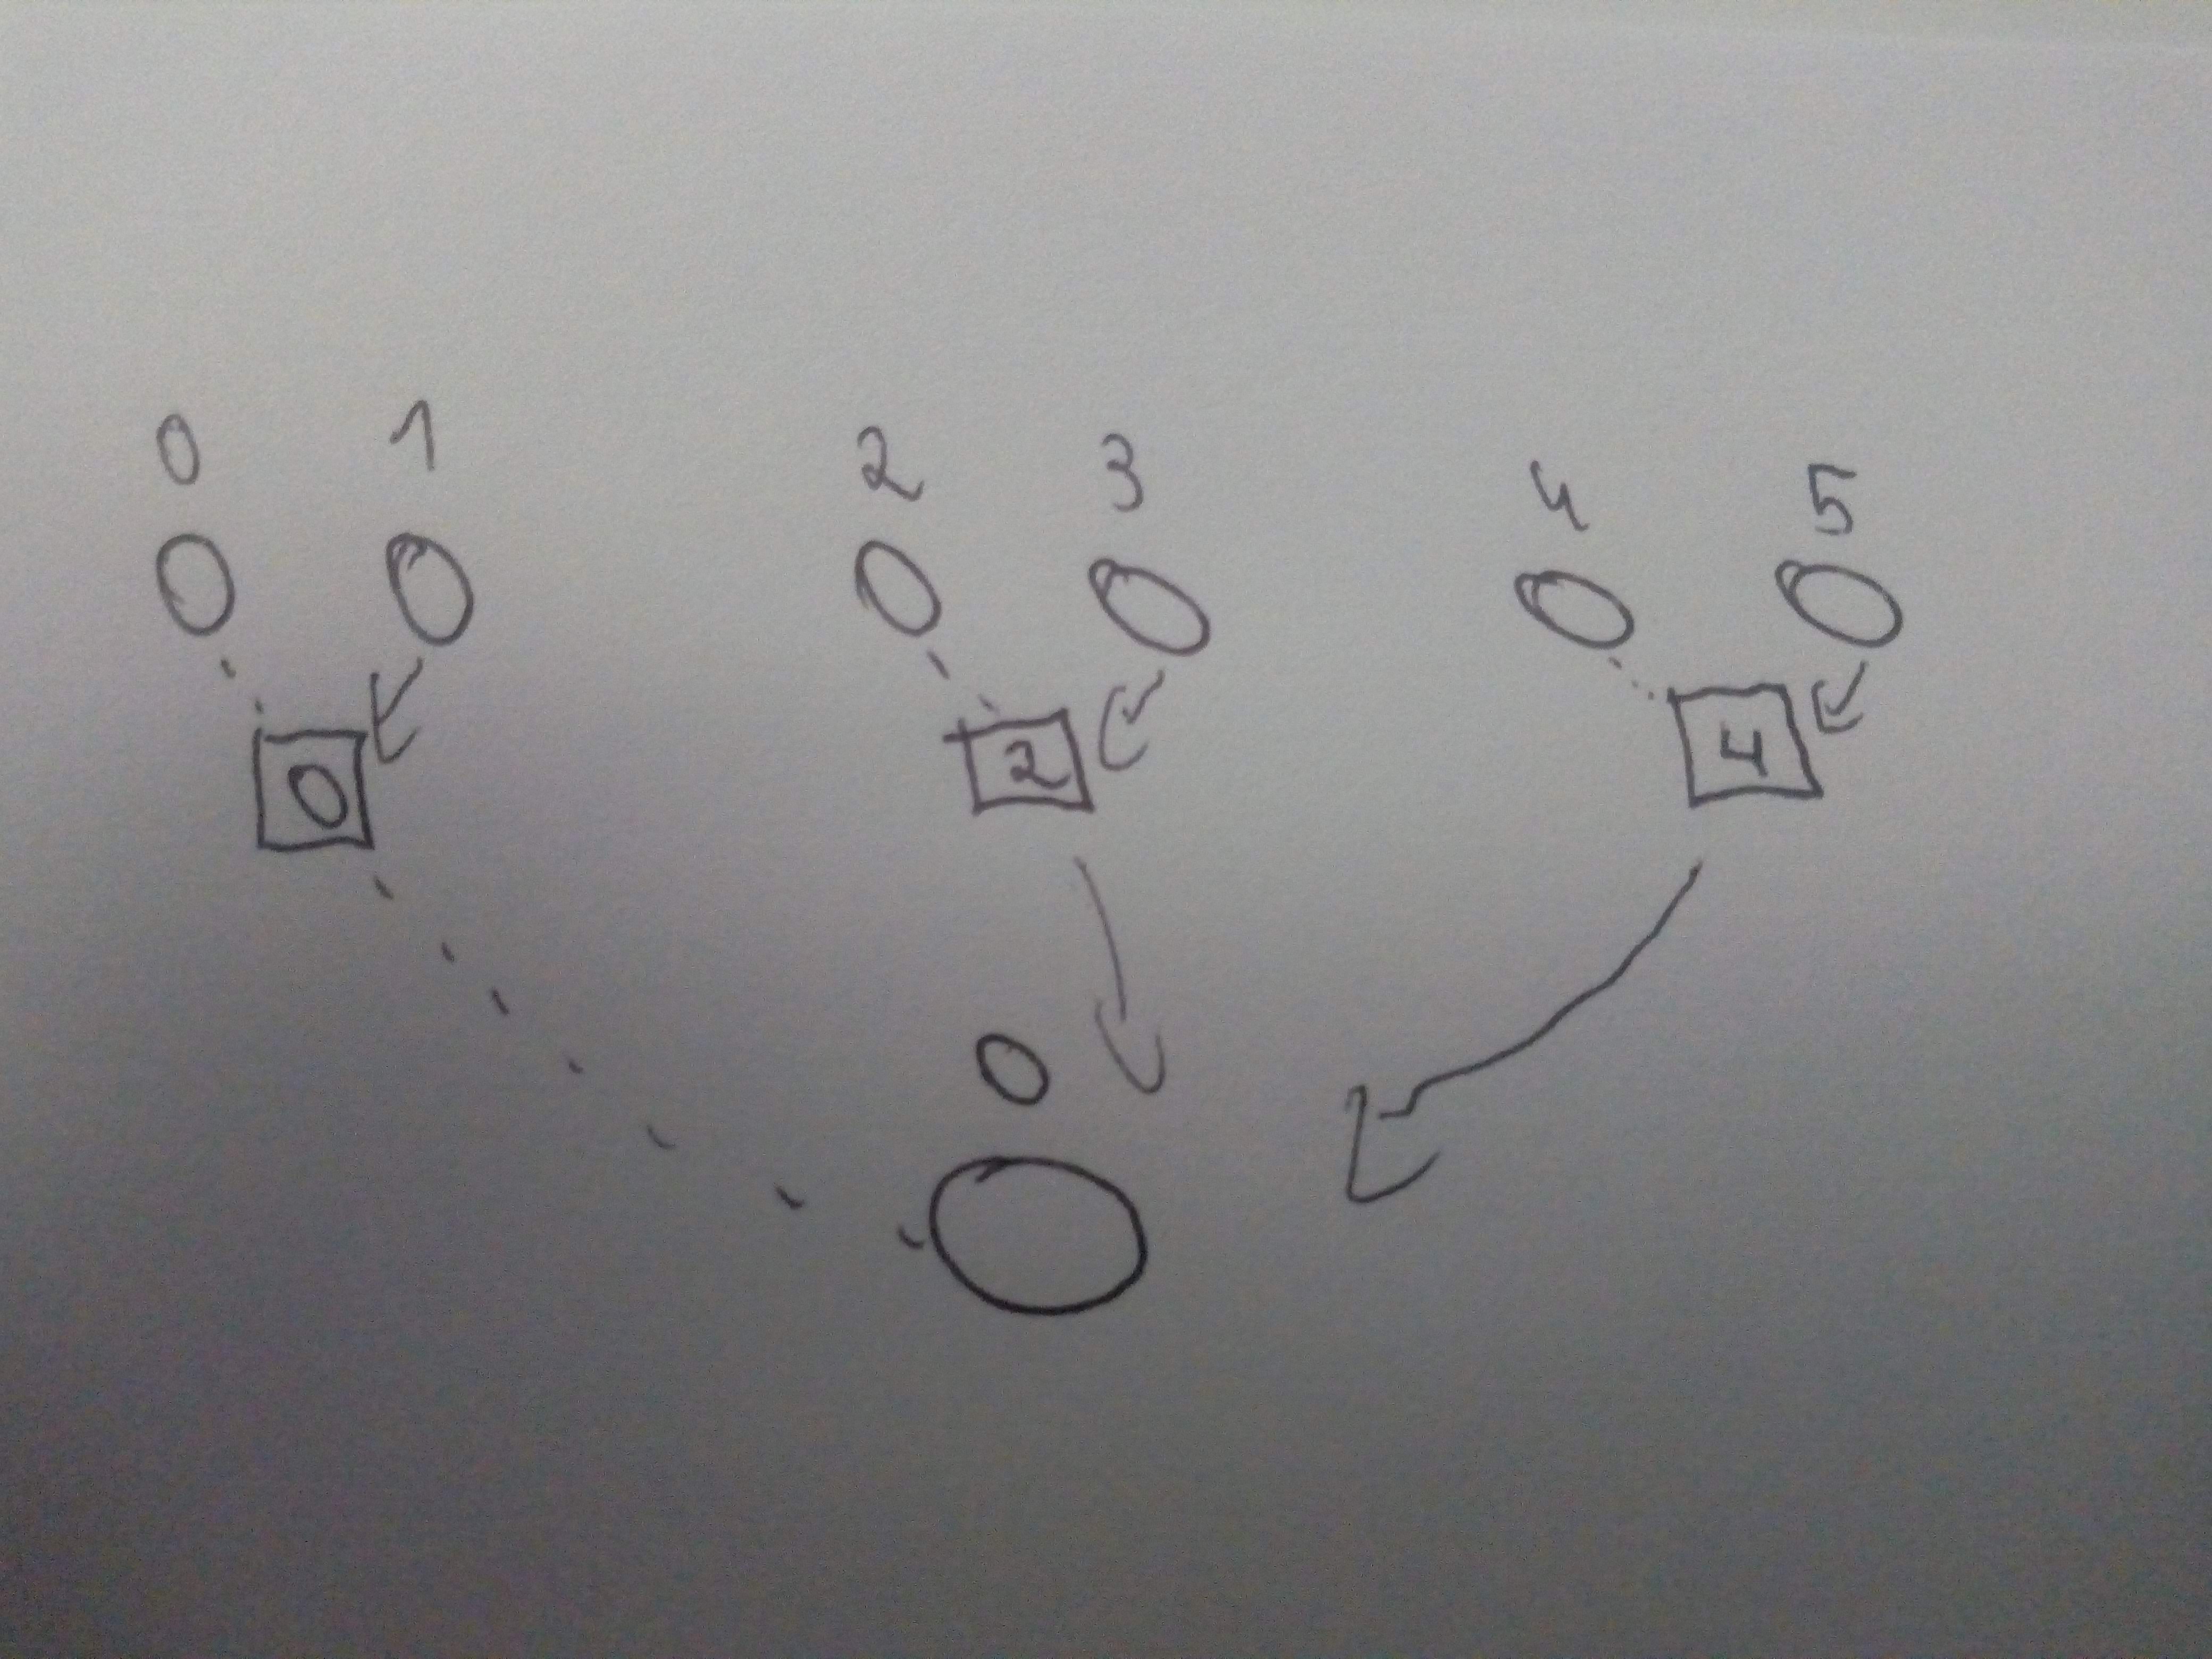 0 1 2 3 4 5
0 2 4
0